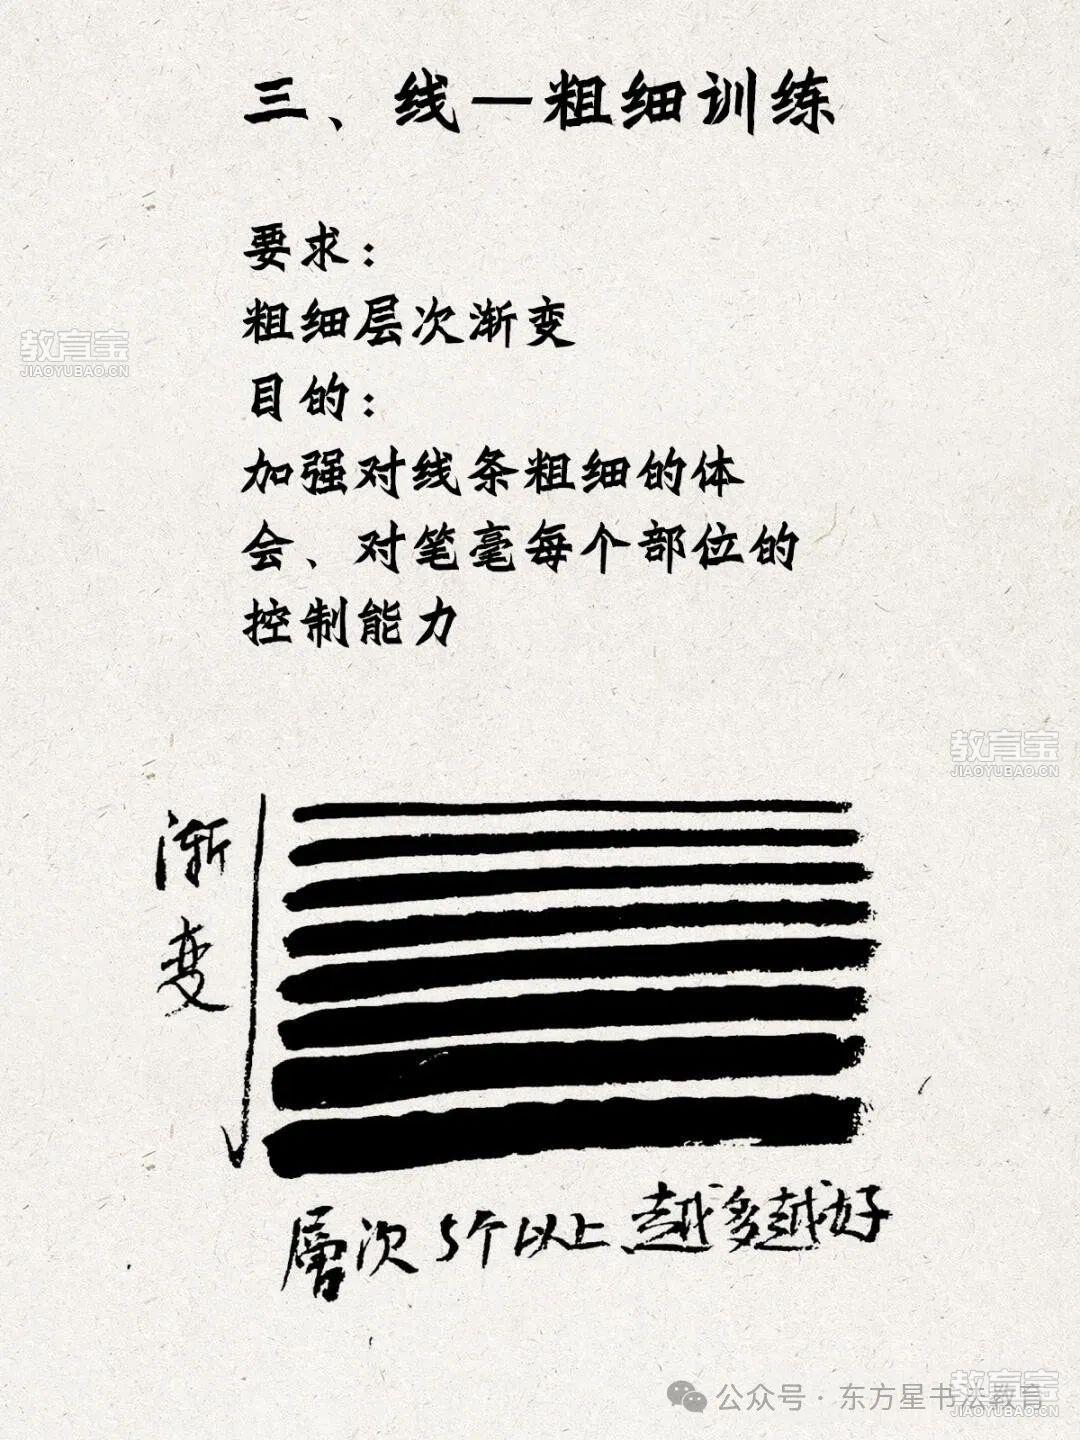 三、线一粗细训练
要求：
粗细层次渐变
目的：
加强对线条粗细的体
会、对笔毫每个部位的
控制能力
教育宝
JIAOYUBAO.CN
教育宝
JIAOYUBAO.CN
渐变
層次5个以上、越多越好
公众号·东方星书法教育
教育宝
JIAOYUBAO.CN